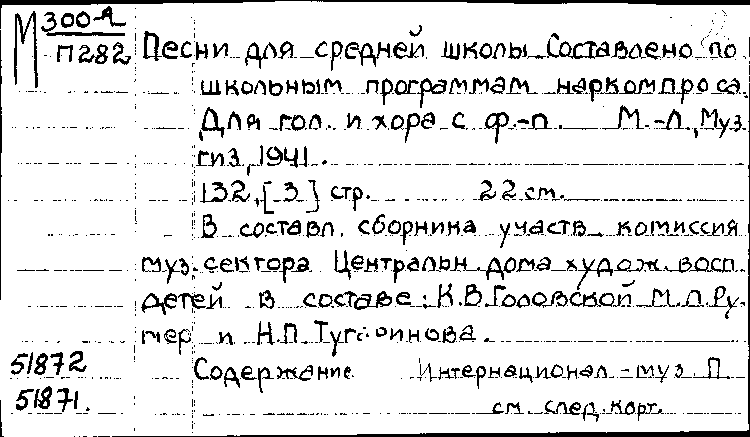 М 300-А
П282 Песни для средней школы Составлено по
школьным программам наркомпроса.
Для гол. и хора с ф.-п. М.-Л., Муз
гиз, 1941.
132, [3] стр. 22 см.
В составл. сборника участв. комиссия
муз. сектора Центральн. дома худож. восп.
детей в составе: К.В. Головской М.Л. Ру-
мер и Н.П.
51872 Содержание Интернационал - муз П.
51871. см. след. карт.